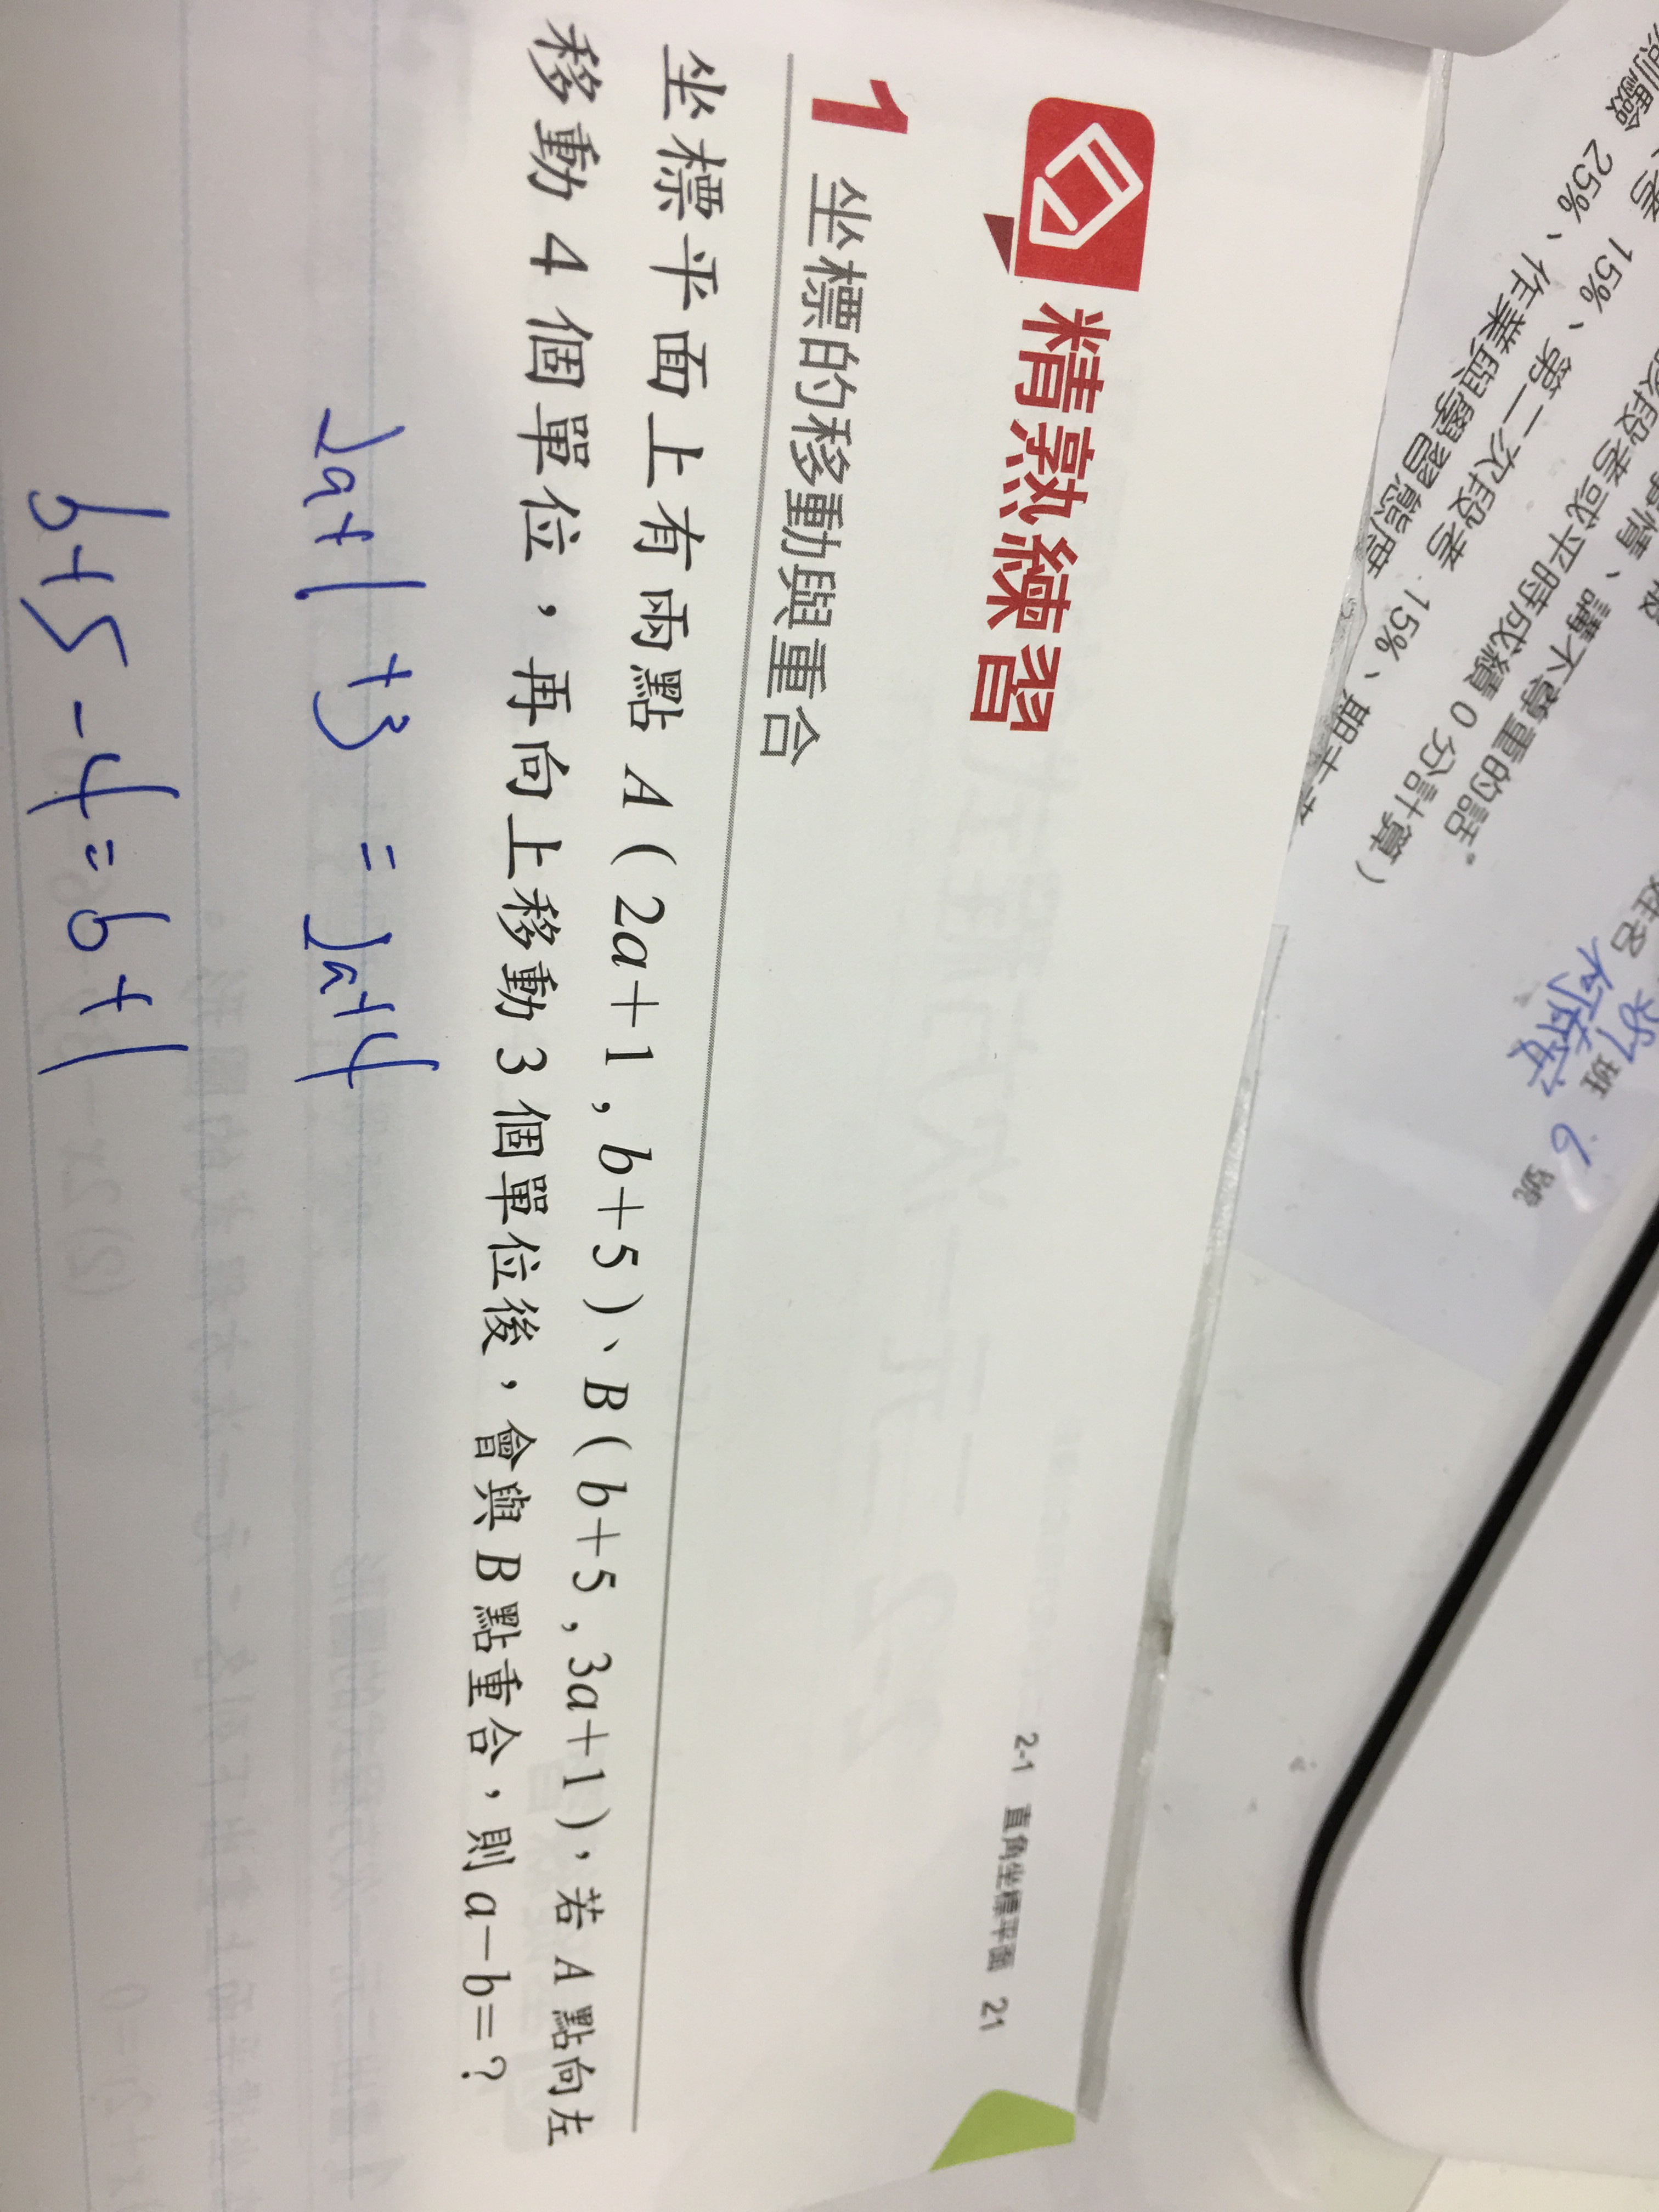 2-1 直角坐標平面 21
精熟練習
1 坐標的移動與重合
坐標平面上有兩點 A(2a+1, b+5)、B(b+5, 3a+1),若 A 點向左
移動 4 個單位,再向上移動 3 個單位後,會與 B 點重合,則 a-b=?
2a+1 +3 = 2a+4
b+5-4=b+1
15%、第二次段考 15%、期末考
25%、作業與學習態度
段考或平時成績 0 分計算)
情、講不尊重的話。
姓名
班 6 號